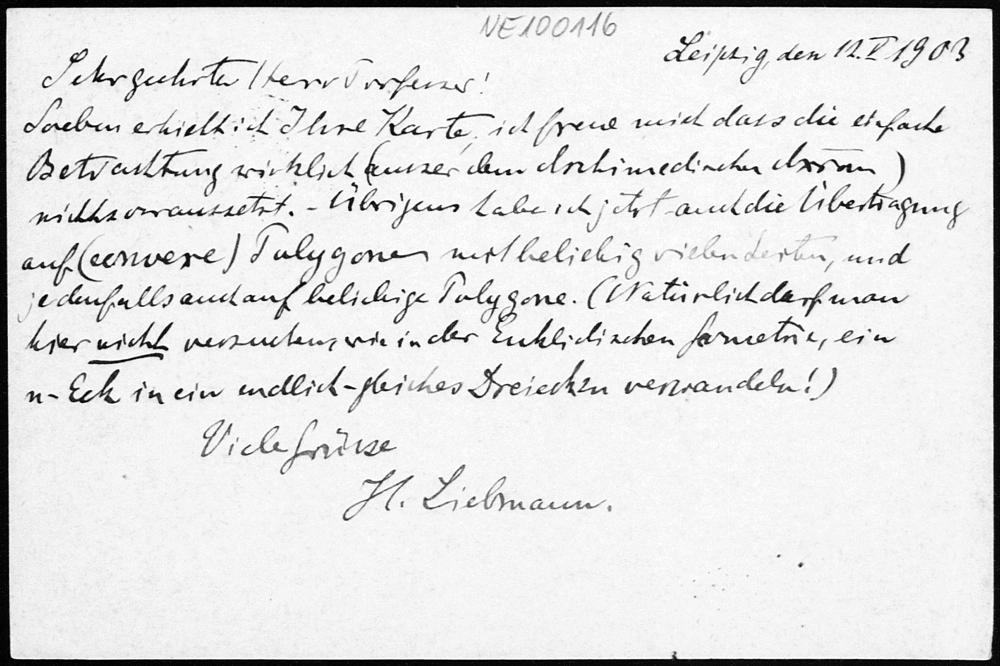 NE100116
Leipzig, den 12.V.1903
Sehr geehrter Herr Professor!
Soeben erhielt ich Ihre Karte, ich freue mich dass die einfache
Betrachtung wirklich (ausser dem Archimedischen Axiom)
nichts voraussetzt. - Übrigens habe ich jetzt auch die Übertragung
auf (convexe) Polygone mit beliebig vielen Seiten, und
jedenfalls auch auf beliebige Polygone. (Natürlich darf man
hier nicht versuchen, wie in der Euklidischen Geometrie, ein
n-Eck in ein endlich-gleiches Dreieck zu verwandeln!)
Viele Grüsse
H. Liebmann.